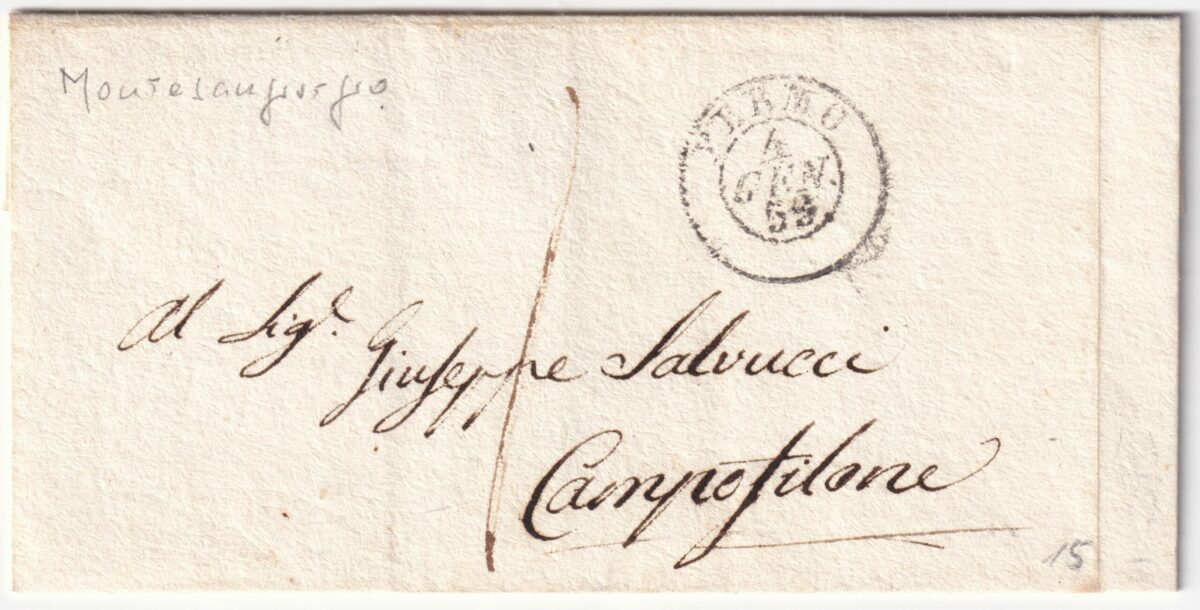 Montesangiorgio
FERMO
4
GEN.
53
1
Al Sigr.
Giuseppe Salvucci
Campofilone
15